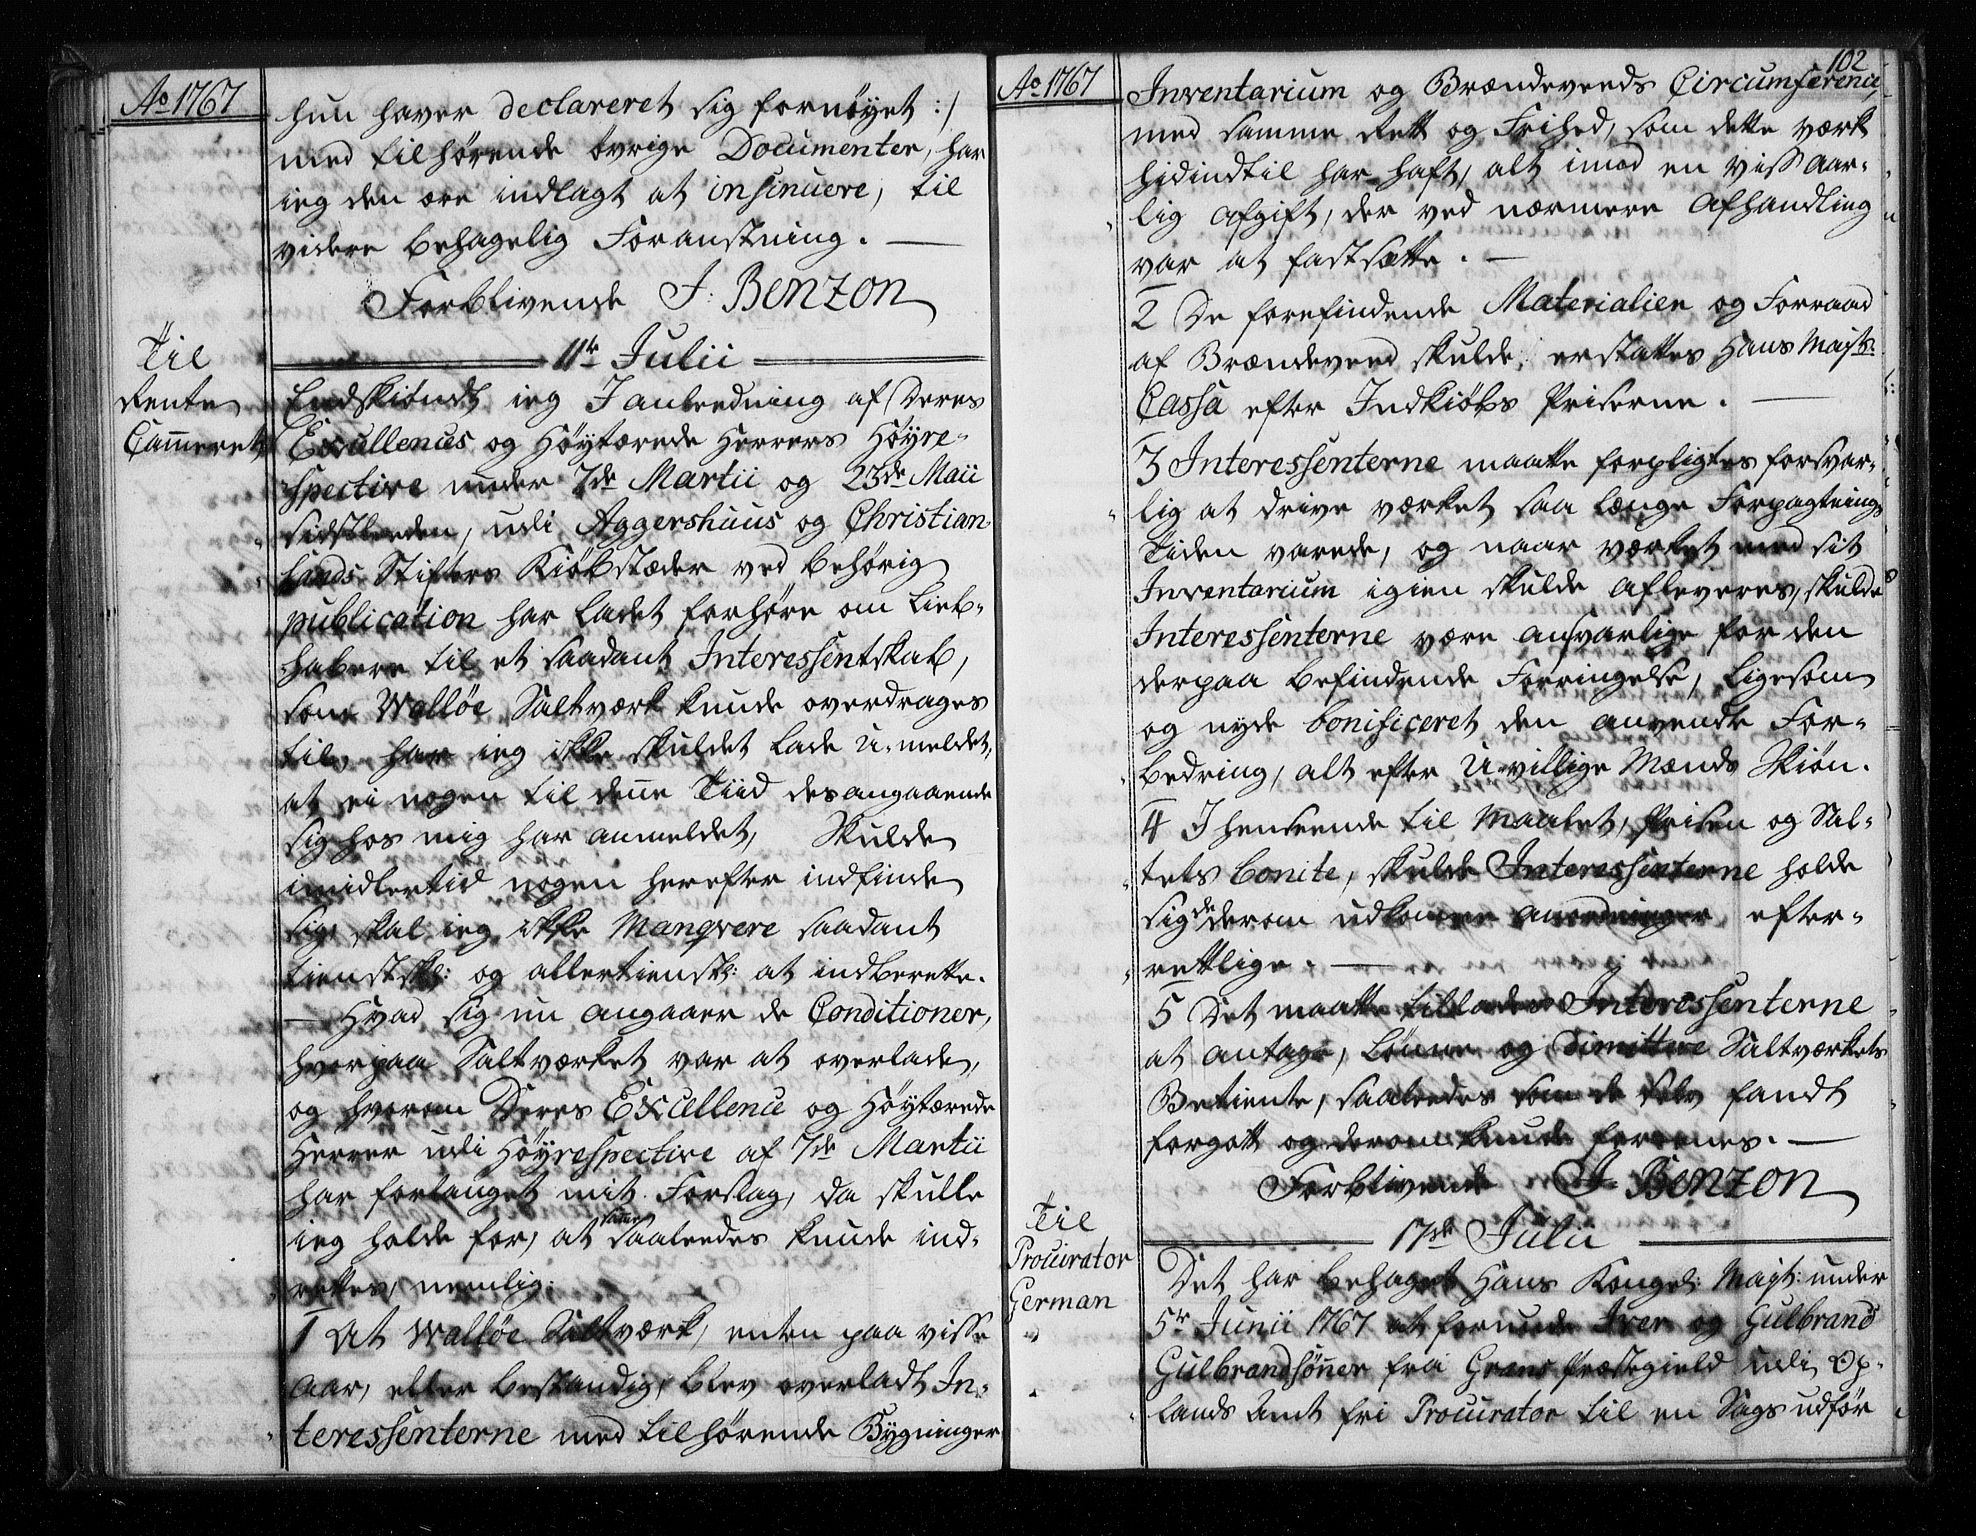 Ao 1767
hun haver declareret sig fornøyet :/
med tilhørende øvrige Documenter, har
ieg den ære indlagt at insinuere, til
videre behagelig Foranstning.
Forblivende J: Benzon
11te Julii
Til
Rente
Cam̅eret
Endskiøndt ieg I anleedning af Deres
Excellences og Høytærede Herrers Høyre-
spective under 7de Martii og 23de Maii
sidstleeden, udi Aggershuus og Christian-
sands Stifters Kiøbstæder ved behørig
publication har ladet forhøre om Lieb-
habere til et saadant Interessentskab,
som Walløe Saltværk kunde overdrages
til, har ieg ikke skuldet lade u-meldet,
at ei nogen til den̅e Tiid desangaaende
sig hos mig har anmeldet, Skulde
imidlertid nogen herefter indfinde
sig, skal ieg ikke Manqvere saadant
tienstskl: og allertienskl: at indberette.
— Hvad sig nu angaaer de Conditioner,
hvorpaa Saltværket var at overlade,
og hvorom Deres Excellence og Høytærede
Herrer udi Høyrespective af 7de Martii
har forlanget mit Forslag, da skulle
ieg holde for, at samme saaleedes kunde ind-
rettes, nemlig:
1 At Walløe Saltværk, enten paa visse
Aar, eller bestandig, blev overladt In-
teressenterne med tilhørende Bygninger
102
Ao 1767
Inventarium og Brændeveeds Circumference,
med samme Rett og Frihed, som dette værk
hidindtil har haft, alt imod en viss aar-
lig Afgift, der ved nærmere Afhandling
var at fastsætte.
2 De forefindende Materialier og Forraad
af Brændeveed skulde erstattes Hans Mayts:
Cassa efter Indkiøbs Priserne.
3 Interessenterne maatte forpligtes forsvar-
lig at drive værket saa længe Forpagtnings
Tiden varede, og naar værket med sit
Inventarium igien skulde afleveres, skulde
Interessenterne være ansvarlige for den
derpaa befindende Forringelse, ligesom
og nyde bonificeret den anvendte For-
bedring, alt efter U-villige Mænds Skiøn.
4 I henseende til Maalet, Prisen og Sal-
tets bonite, skulde Interessenterne holde
sig de derom udkom̅ne anordninger efter-
rettlige.
5 Det maatte tillades Interessenterne
at antage, lønne og dimittere Saltværkets
Betiente, saaleedes som de selv fandt
forgott og derom kunde foreenes.
Forblivende J. Benzon
17de Julii
Til
Procurator
German
Det har behaget Hans Kongel: Mayt: under
5te Junii 1767 at forunde Iver og Gulbrand
Gulbrandsøn̅er fra Grans Præstegield udi Op-
lands Amt fri Procurator til en Sags udfør